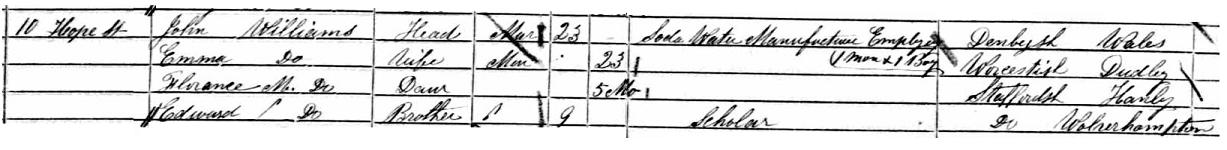 10 Hope St John Williams Head Mar 23 Soda Water Manufacturer Employing Denbigsh Wales
Emma Do Wife Mar 23 1 Man & 1 Boy Worcestish Dudley
Florance M. Do Daur 5 Mo Staffordsh Hanley
Edward Do Brother 9 Scholar Do Wolverhampton